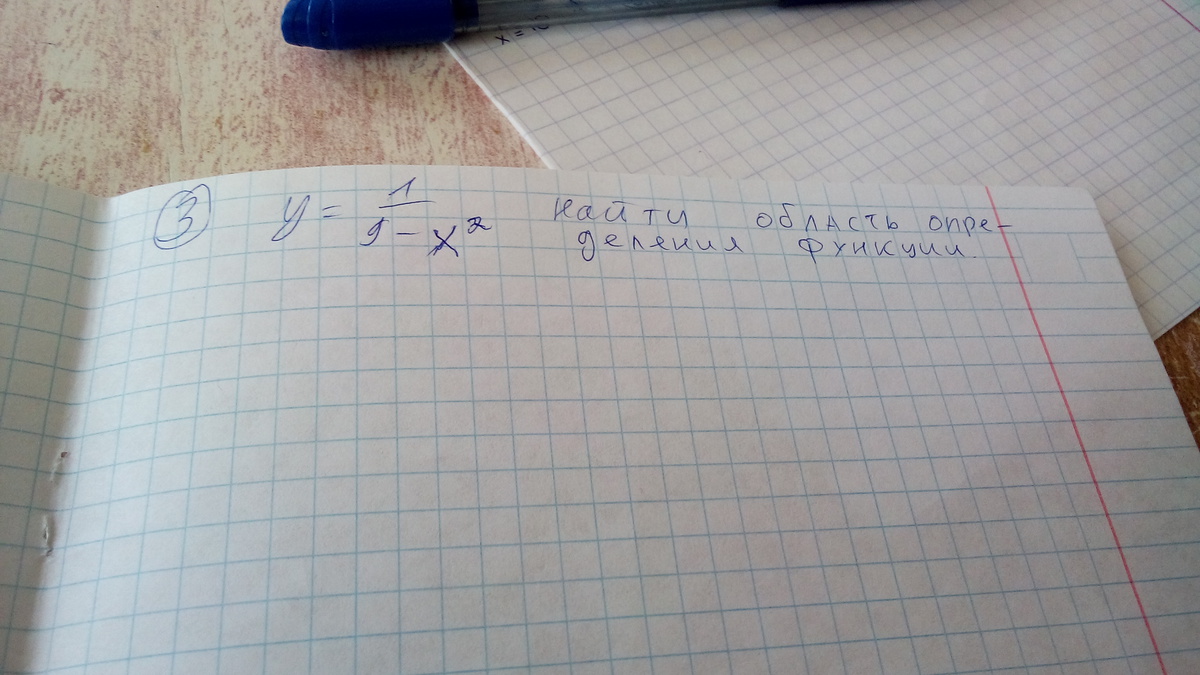 x = 10
③ y = 1/(9 - x²) Найти область опре-
деления функции.